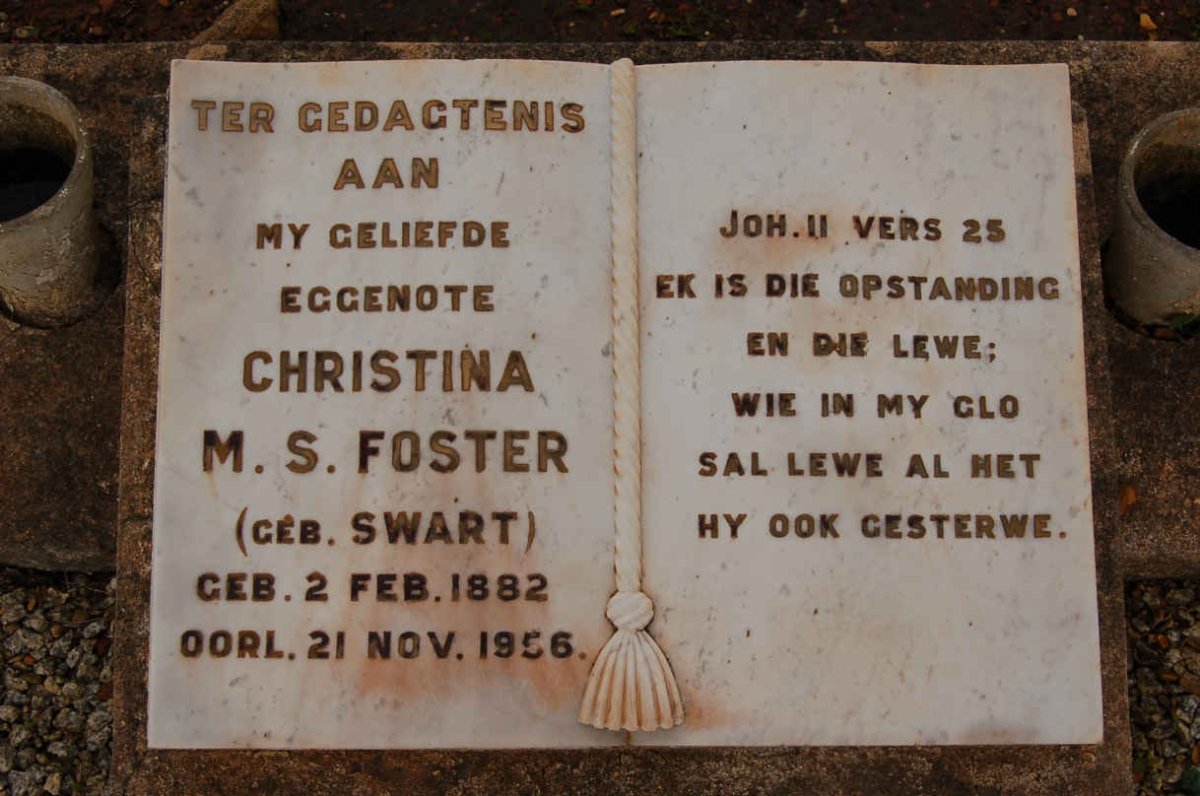 TER GEDAGTENIS
AAN
MY GELIEFDE
EGGENOTE
CHRISTINA
M. S. FOSTER
(GEB. SWART)
GEB. 2 FEB. 1882
OORL. 21 NOV. 1956.
JOH. 11 VERS 25
EK IS DIE OPSTANDING
EN DIE LEWE;
WIE IN MY GLO
SAL LEWE AL HET
HY OOK GESTERWE.